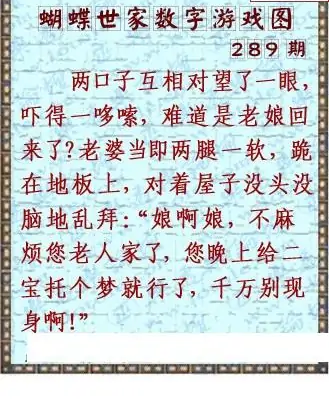 蝴蝶世家数字游戏图
289期
两口子互相对望了一眼，
吓得一哆嗦，难道是老娘回
来了?老婆当即两腿一软，跪
在地板上，对着屋子没头没
脑地乱拜:“娘啊娘，不麻
烦您老人家了，您晚上给二
宝托个梦就行了，千万别现
身啊!”